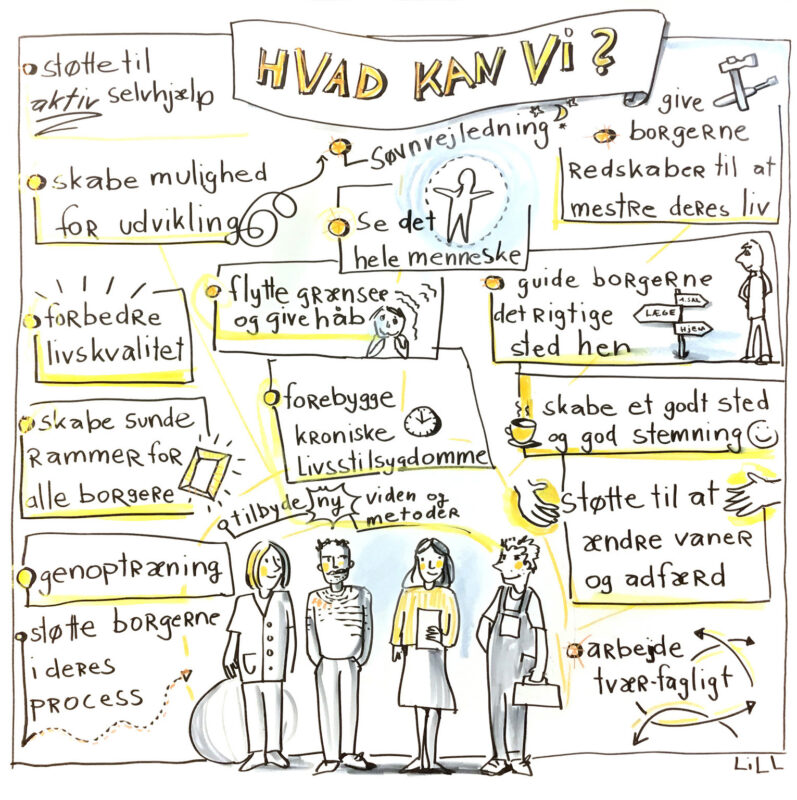 HVAD KAN VI?
støtte til
aktiv selvhjælp
skabe mulighed
for udvikling
Søvnvejledning
Se det
hele menneske
give
borgerne
Redskaber til at
mestre deres liv
forbedre
livskvalitet
flytte grænser
og give håb
guide borgerne
det rigtige
sted hen
1. SAL
LÆGE
Hjem
skabe sunde
rammer for
alle borgere
forebygge
kroniske
livsstilsygdomme
skabe et godt sted
og god stemning
støtte til at
ændre vaner
og adfærd
tilbyde ny viden og
metoder
genoptræning
støtte borgerne
i deres
process
arbejde
tvær-fagligt
LiLL